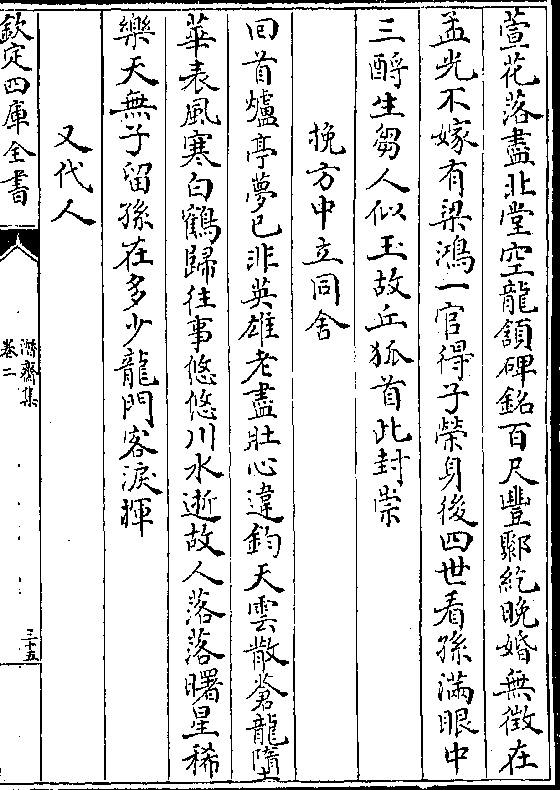 萱花落盡北堂空龍額碑銘百尺豐鄹紇晚婚無徵在
孟光不嫁有梁鴻一官得子榮身後四世看孫滿眼中
三酹生芻人似玉故丘狐首此封崇
挽方申立同舍
回首爐亭夢已非英雄老盡壯心違鈞天雲散蒼龍墮
華表風寒白鶴歸往事悠悠川水逝故人落落曙星稀
樂天無子留孫在多少龍門客淚揮
又代人
欽定四庫全書
潛齋集
卷二
三十五